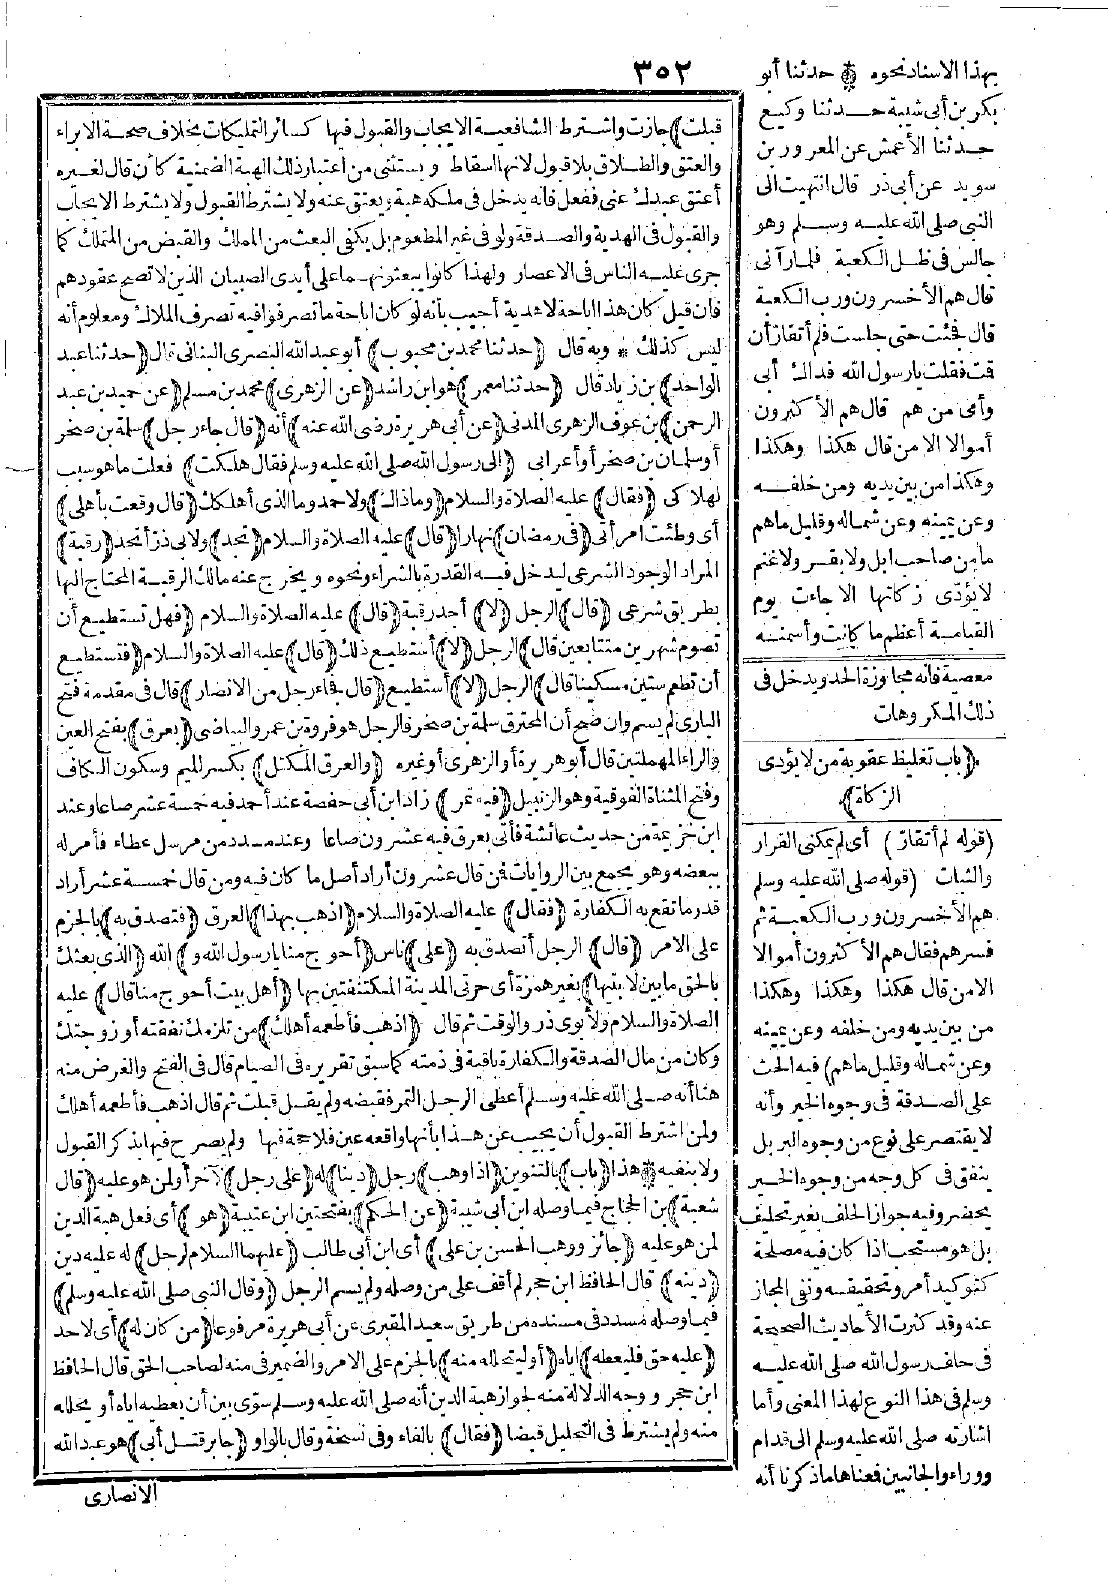 ٣٥٢
قبلت) جازت واشترط الشافعية الايجاب والقبول فيها كسائر التمليكات بخلاف صحة الابراء
والعتق والطلاق بلا قبول لانها اسقاط ويستثنى من اعتبار ذلك الهبة الضمنية كأن قال لغيره
أعتق عبدك عنى ففعل فانه يدخل فى ملكه هبة ويعتق عنه ولا يشترط القبول ولا يشترط الايجاب
والقبول فى الهدية والصدقة ولو فى غير المطعوم بل يكفى البعث من المملك والقبض من المتملك كما
جرى عليه الناس فى الاعصار ولهذا كانوا يبعثونهما على أيدى الصبيان الذين لا تصح عقودهم
فان قيل كان هذا اباحة لا هدية أجيب بأنه لو كان اباحة ما تصرفوا فيه تصرف الملاك ومعلوم أنه
ليس كذلك * وبه قال (حدثنا محمد بن محبوب) أبو عبد الله البصرى البنانى قال (حدثنا عبد
الواحد) بن زياد قال (حدثنا معمر) هو ابن راشد (عن الزهرى) محمد بن مسلم (عن حميد بن عبد
الرحمن) بن عوف الزهرى المدنى (عن أبى هريرة رضى الله عنه) أنه (قال جاء رجل) سلمة بن صخر
أو سلمان بن صخر أو أعرابى (الى رسول الله صلى الله عليه وسلم فقال هلكت) فعلت ما هو سبب
لهلاكى (فقال) عليه الصلاة والسلام (وما ذاك) ولاحمد وما الذى أهلكك (قال وقعت بأهلى)
أى وطئت امرأتى (فى رمضان) نهارا (قال) عليه الصلاة والسلام (تجد) ولابى ذر أتجد (رقبة)
المراد الوجود الشرعى ليدخل فيه القدرة بالشراء ونحوه ويخرج عنه مالك الرقبة المحتاج اليها
بطريق شرعى (قال) الرجل (لا) أجد رقبة (قال) عليه الصلاة والسلام (فهل تستطيع أن
تصوم شهرين متتابعين قال) الرجل (لا) أستطيع ذلك (قال) عليه الصلاة والسلام (فتستطيع
أن تطعم ستين مسكينا قال) الرجل (لا) أستطيع (قال فجاء رجل من الانصار) قال فى مقدمة فتح
البارى لم يسم وان صح أن المحترق سلمة بن صخر فالرجل هو فروة بن عمرو البياضى (بعرق) بفتح العين
والراء المهملتين قال أبو هريرة أو الزهرى أو غيره (والعرق المكتل) بكسر للميم وسكون الكاف
وفتح المثناة الفوقية وهو الزنبيل (فيه تمر) زاد ابن أبى حفصة عند أحمد فيه خمسة عشر صاعا وعند
ابن خزيمة من حديث عائشة فأتى بعرق فيه عشرون صاعا وعند مسدد من مرسل عطاء فأمر له
ببعضه وهو يجمع بين الروايات فمن قال عشرون أراد أصل ما كان فيه ومن قال خمسة عشر أراد
قدر ما تقع به الكفارة (فقال) عليه الصلاة والسلام (اذهب بهذا) العرق (فتصدق به) بالجزم
على الامر (قال) الرجل أتصدق به (على) ناس (أحوج منا يا رسول الله و) الله (الذى بعثك
بالحق ما بين لابتيها) بغير همزة أى حرتى المدينة المكتنفتين بها (أهل بيت أحوج منا قال) عليه
الصلاة والسلام ولأبوى ذر والوقت ثم قال (اذهب فأطعمه أهلك) من تلزمك نفقته أو زوجتك
وكان من مال الصدقة والكفارة باقية فى ذمته كما سبق تقريره فى الصيام قال فى الفتح والغرض منه
هنا أنه صلى الله عليه وسلم أعطى الرجل التمر فقبضه ولم يقل قبلت ثم قال اذهب فأطعمه أهلك
ولمن اشترط القبول أن يجيب عن هذا بأنها واقعة عين فلا حجة فيها ولم يصرح فيها بذكر القبول
ولا بنفيه * هذا (باب) بالتنوين (اذا وهب) رجل (دينا) له (على رجل) لآخر أو لمن هو عليه (قال
شعبة) بن الحجاج فيما وصله ابن أبى شيبة (عن الحكم) بفتحتين ابن عتيبة (هو) أى فعل هبة الدين
لمن هو عليه (جائز ووهب الحسن بن على) أى ابن أبى طالب (عليهما السلام لرجل) له عليه دين
(دينه) قال الحافظ ابن حجر لم أقف على من وصله ولم يسم الرجل (وقال النبى صلى الله عليه وسلم)
فيما وصله مسدد فى مسنده من طريق سعيد المقبرى عن أبى هريرة مرفوعا (من كان له) أى لاحد
(عليه حق فليعطه) اياه (أو ليتحلله منه) بالجزم على الامر والضمير فى منه لصاحب الحق قال الحافظ
ابن حجر ووجه الدلالة منه لجواز هبة الدين أنه صلى الله عليه وسلم سوى بين أن يعطيه اياه أو يحلله
منه ولم يشترط فى التحليل قبضا (فقال) بالفاء وفى نسخة وقال بالواو (جابر قتل أبى) هو عبد الله
الانصارى
بهذا الاسناد نحوه * حدثنا أبو
بكر بن أبى شيبة حدثنا وكيع
حدثنا الأعمش عن المعرور بن
سويد عن أبى ذر قال انتهيت الى
النبى صلى الله عليه وسلم وهو
جالس فى ظل الكعبة فلما رآنى
قال هم الأخسرون ورب الكعبة
قال فجئت حتى جلست فلم أتقار أن
قت فقلت يا رسول الله فداك أبى
وأمى من هم قال هم الأكثرون
أموالا الا من قال هكذا وهكذا
وهكذا من بين يديه ومن خلفه
وعن يمينه وعن شماله وقليل ما هم
ما من صاحب ابل ولا بقر ولا غنم
لا يؤدى زكاتها الا جاءت يوم
القيامة أعظم ما كانت وأسمنه
معصية فانه مجاوزة الحد ويدخل فى
ذلك المكروهات
(باب تغليظ عقوبة من لا يؤدى
الزكاة)
(قوله لم أتقار) أى لم يمكنى القرار
والثبات (قوله صلى الله عليه وسلم
هم الأخسرون ورب الكعبة ثم
فسرهم فقال هم الأكثرون أموالا
الا من قال هكذا وهكذا وهكذا
من بين يديه ومن خلفه وعن يمينه
وعن شماله وقليل ما هم) فيه الحث
على الصدقة فى وجوه الخير وأنه
لا يقتصر على نوع من وجوه البر بل
ينفق فى كل وجه من وجوه الخير
يحضر وفيه جواز الحلف بغير تحليف
بل هو مستحب اذا كان فيه مصلحة
كتوكيد أمر وتحقيقه ونفى المجاز
عنه وقد كثرت الأحاديث الصحيحة
فى حلف رسول الله صلى الله عليه
وسلم فى هذا النوع لهذا المعنى وأما
اشارته صلى الله عليه وسلم الى قدام
ووراء والجانبين فمعناها ما ذكرنا أنه